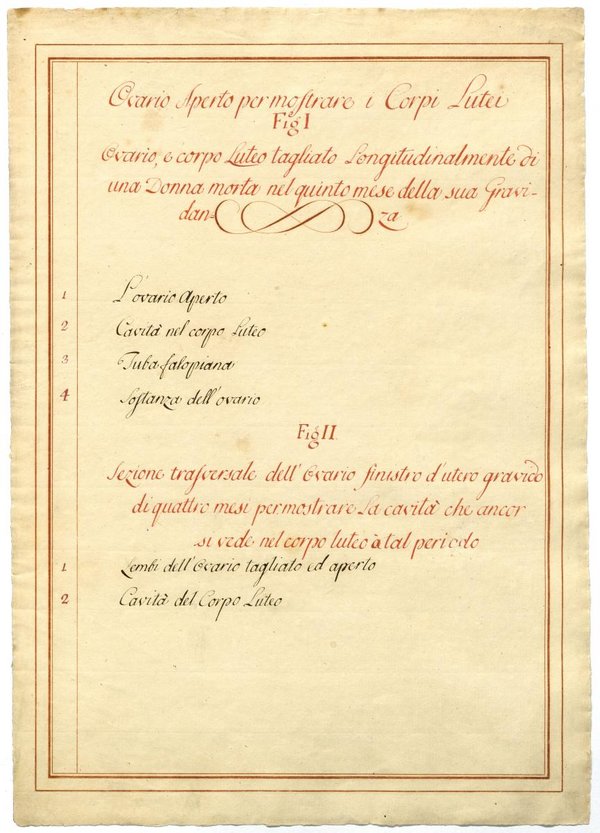 Ovario Aperto per moſtrare i Corpi Lutei
Fig I
Ovario, e corpo Luteo tagliato Longitudinalmente di
una Donna morta nel quinto mese della sua Gravi-
dan- za
1 L'ovario Aperto
2 Cavità nel corpo Luteo
3 Tuba falopiana
4 Soſtanza dell'ovario
Fig II
Sezione trasverſale dell'Ovario ſinistro d'utero gravido
di quattro mesi per mostrare La cavità che ancor
si vede nel corpo luteo à tal periodo
1 Lembi dell'Ovario tagliato ed aperto
2 Cavità del Corpo Luteo